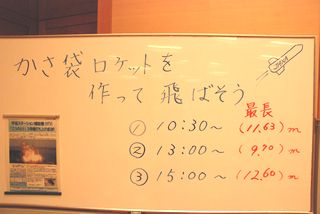 かさ袋ロケットを
作って 飛ばそう
最長
① 10:30～ (11.63) m
② 13:00～ (9.70) m
③ 15:00～ (12.60) m